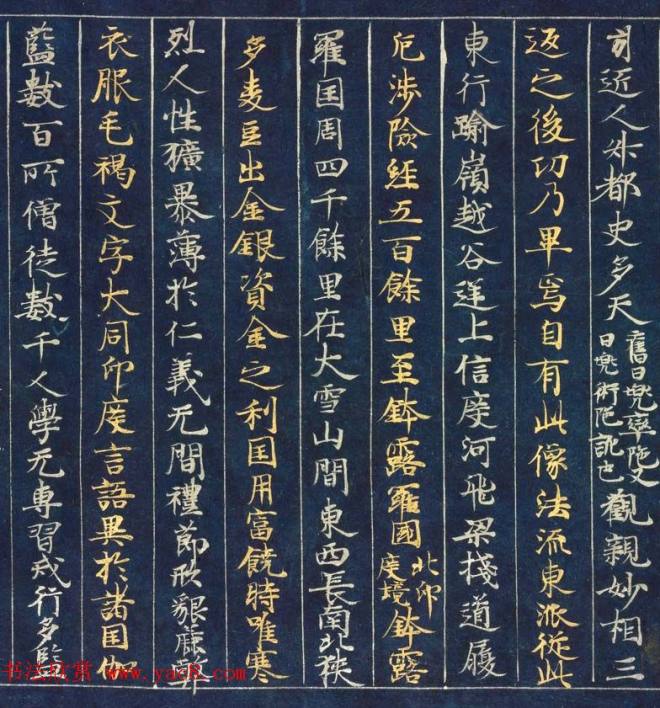 引近人升都史多天舊曰兜率陁又曰兜術陁訛也觀親妙相三
返之後功乃畢焉自有此像法流東派從此
東行踰嶺越谷逆上信度河飛梁棧道履
危涉險經五百餘里至鉢露羅國北印度境鉢露
羅国周四千餘里在大雪山間東西長南北狹
多麦豆出金銀資金之利国用富饒時唯寒
烈人性獷暴薄於仁義无間禮節形貌麁弊
衣服毛褐文字大同印度言語異於諸国伽
藍數百所僧徒數千人學无專習戒行多濫
书法欣赏 www.yac8.com